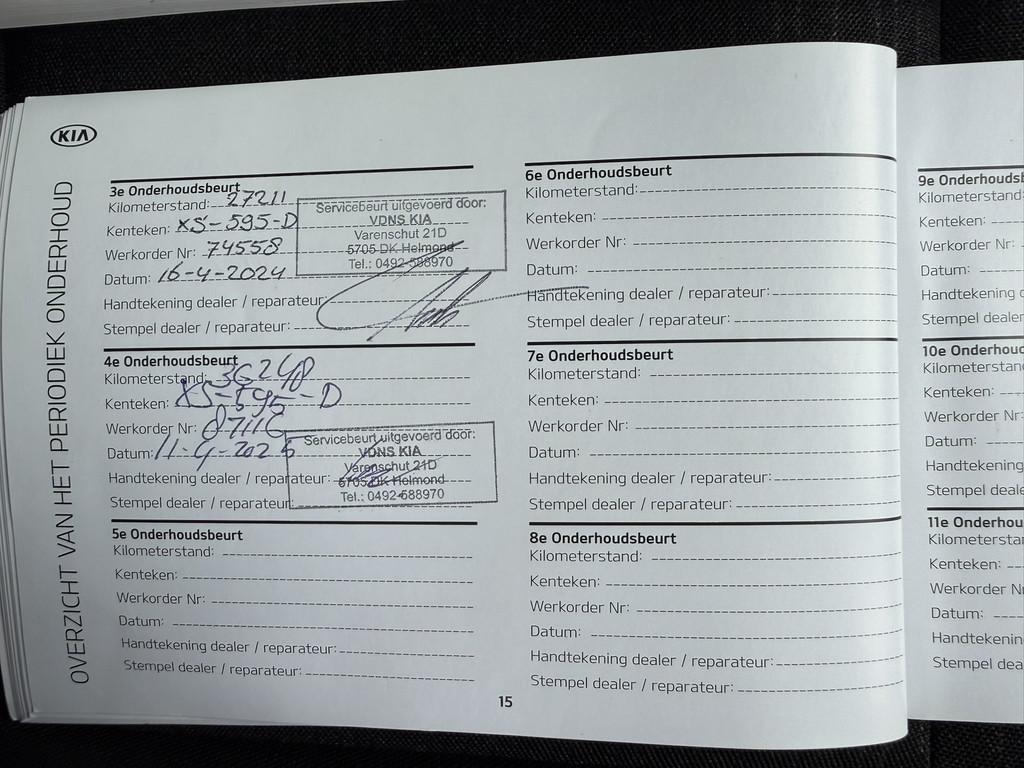 KIA
OVERZICHT VAN HET PERIODIEK ONDERHOUD
3e Onderhoudsbeurt
Kilometerstand: 27211
Kenteken: XS-595-D
Werkorder Nr: 74558
Datum: 16-4-2024
Handtekening dealer / reparateur:
Stempel dealer / reparateur:
Servicebeurt uitgevoerd door:
VDNS KIA
Varenschut 21D
5705 DK Helmond
Tel.: 0492-588970
4e Onderhoudsbeurt
Kilometerstand: 36248
Kenteken: XS-595-D
Werkorder Nr: 87116
Datum: 11-4-2025
Handtekening dealer / reparateur:
Stempel dealer / reparateur:
Servicebeurt uitgevoerd door:
VDNS KIA
Varenschut 21D
5705 DK Helmond
Tel.: 0492-588970
5e Onderhoudsbeurt
Kilometerstand:
Kenteken:
Werkorder Nr:
Datum:
Handtekening dealer / reparateur:
Stempel dealer / reparateur:
6e Onderhoudsbeurt
Kilometerstand:
Kenteken:
Werkorder Nr:
Datum:
Handtekening dealer / reparateur:
Stempel dealer / reparateur:
7e Onderhoudsbeurt
Kilometerstand:
Kenteken:
Werkorder Nr:
Datum:
Handtekening dealer / reparateur:
Stempel dealer / reparateur:
8e Onderhoudsbeurt
Kilometerstand:
Kenteken:
Werkorder Nr:
Datum:
Handtekening dealer / reparateur:
Stempel dealer / reparateur:
15
9e Onderhouds
Kilometerstand:
Kenteken:
Werkorder Nr:
Datum:
Handtekening
Stempel dealer
10e Onderhoud
Kilometerstan
Kenteken:
Werkorder Nr:
Datum:
Handtekening
Stempel deale
11e Onderhou
Kilometersta
Kenteken:
Werkorder N
Datum:
Handtekenin
Stempel dea